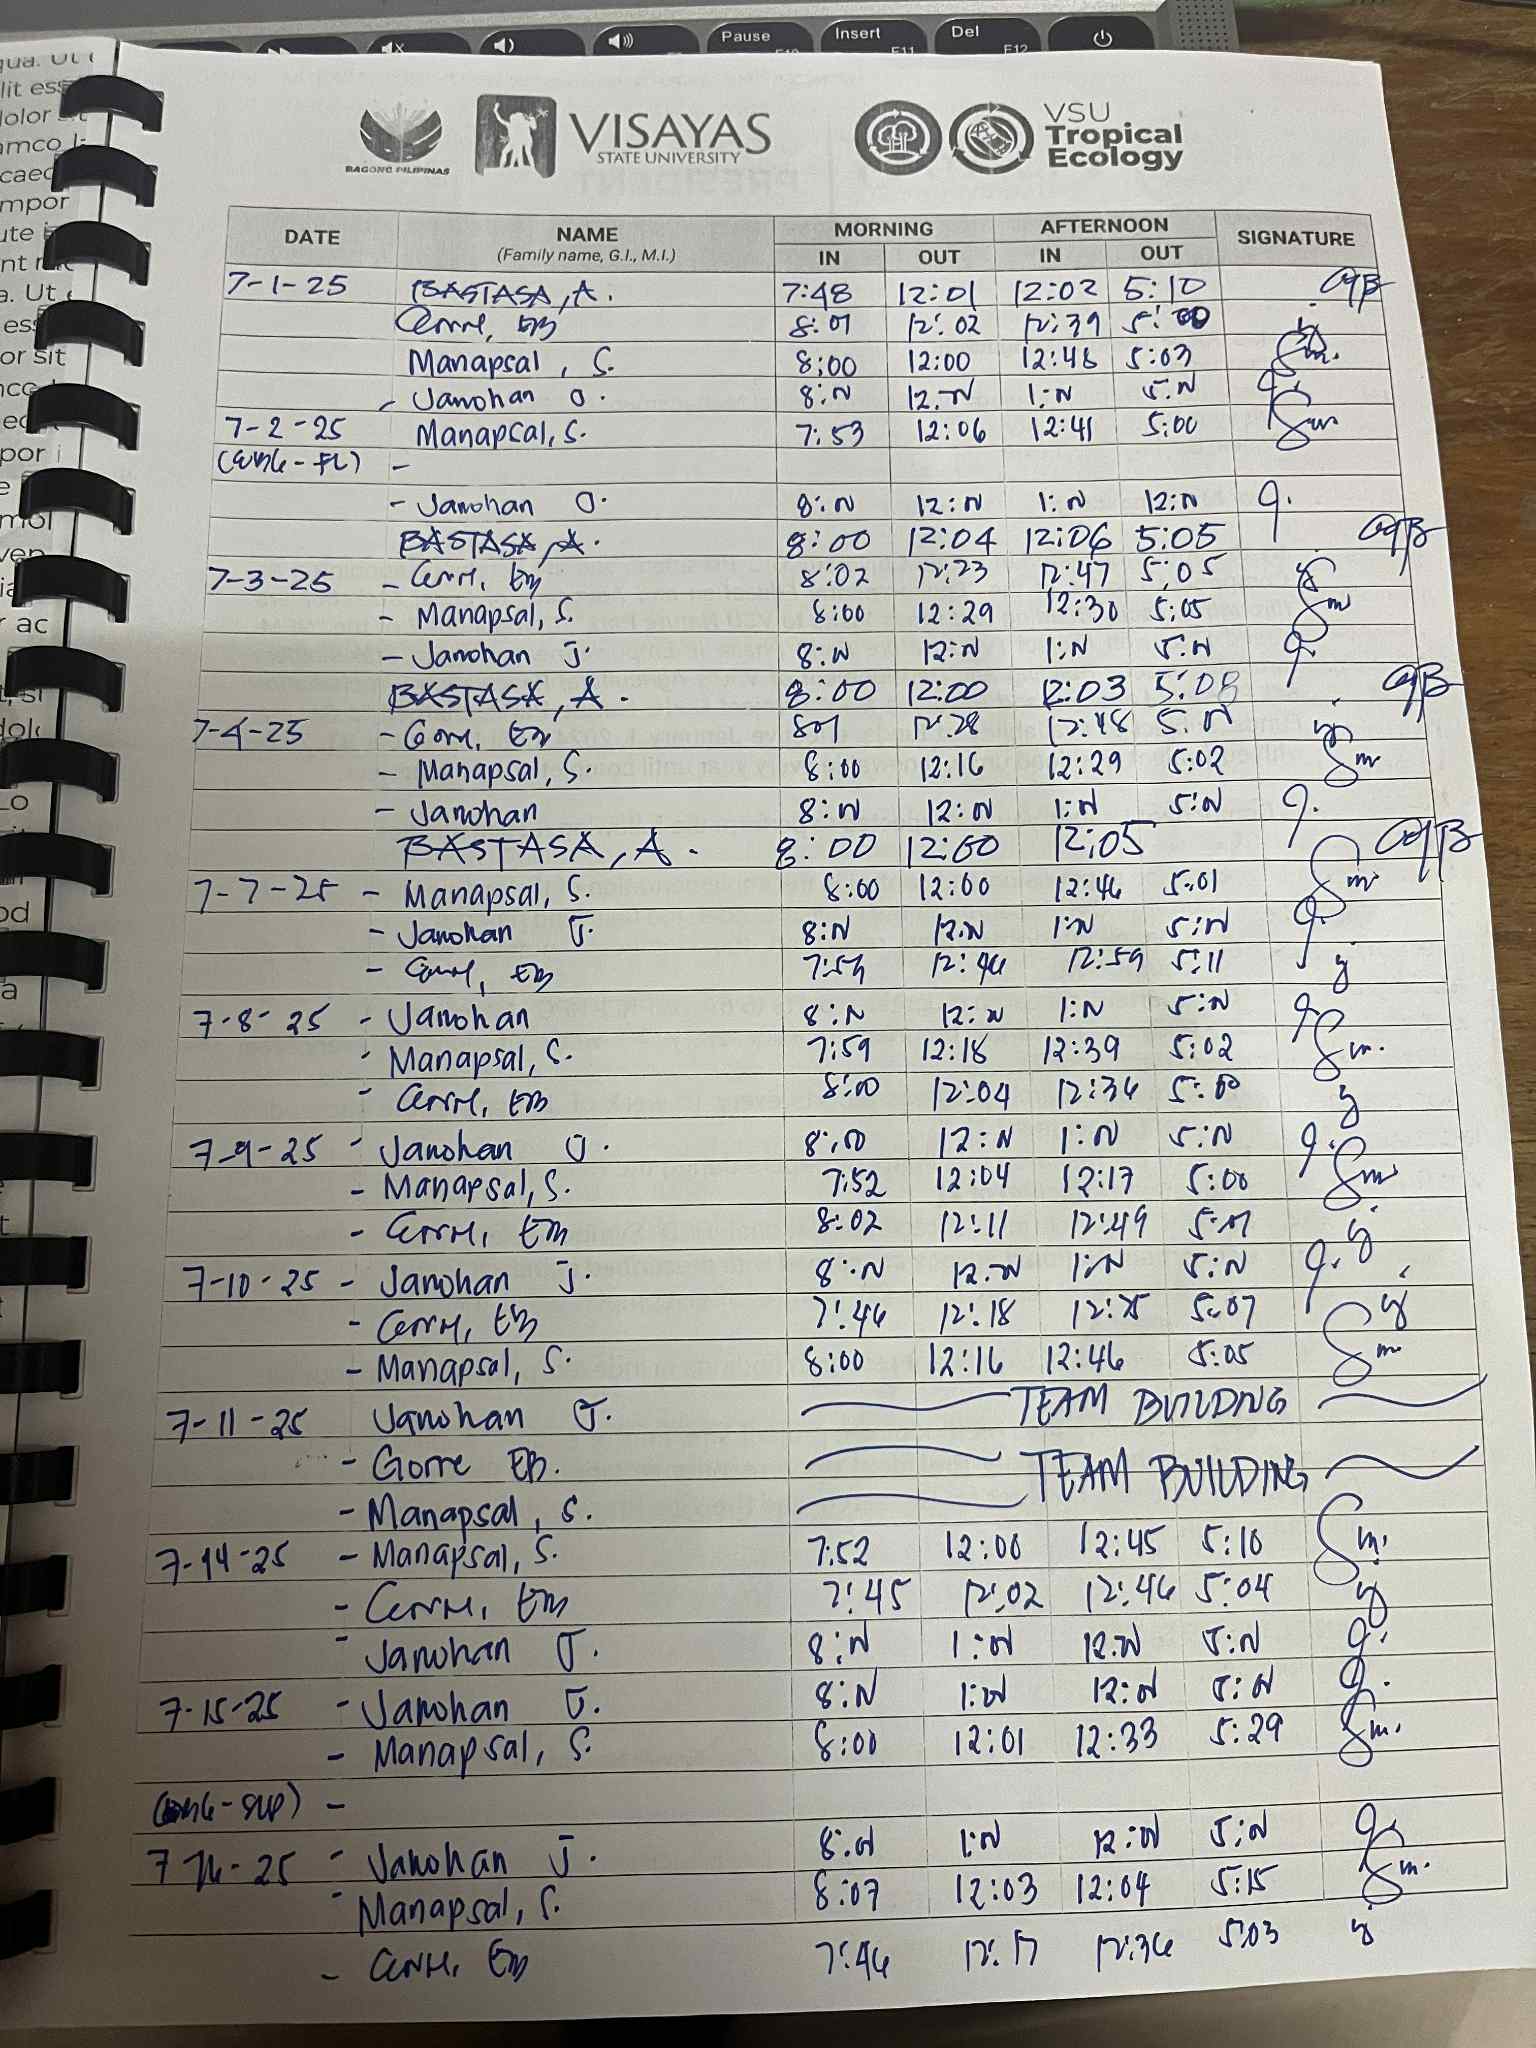 Pause Insert Del
F11 F12
BAGONG PILIPINAS
VISAYAS
STATE UNIVERSITY
VSU
Tropical
Ecology
DATE NAME MORNING AFTERNOON SIGNATURE
(Family name, G.I., M.I.) IN OUT IN OUT
7-1-25 BASTASA, A. 7:48 12:01 12:02 5:10
8:01 12:02 12:39 5:00
Manapsal, S. 8:00 12:00 12:48 5:03
- Janohan J. 8:N 12:N 1:N 5:N
7-2-25 Manapsal, S. 7:53 12:06 12:41 5:00
-
- Janohan J. 8:N 12:N 1:N 12:N
BASTASA, A. 8:00 12:04 12:06 5:05
7-3-25 - 8:02 12:23 12:47 5:05
- Manapsal, S. 8:00 12:29 12:30 5:05
- Janohan J. 8:N 12:N 1:N 5:N
BASTASA, A. 8:00 12:00 12:03 5:08
7-4-25 - Gorre, EB 801 12:28 12:48 5:N
- Manapsal, S. 8:00 12:16 12:29 5:02
- Janohan 8:N 12:N 1:N 5:N
BASTASA, A. 8:00 12:00 12:05
7-7-25 - Manapsal, S. 8:00 12:00 12:46 5:01
- Janohan J. 8:N 12:N 1:N 5:N
- 12:46 12:59 5:11
7-8-25 - Janohan 8:N 12:N 1:N 5:N
- Manapsal, S. 7:59 12:18 12:39 5:02
- 8:00 12:04 12:36 5:00
7-9-25 - Janohan J. 8:N 12:N 1:N 5:N
- Manapsal, S. 7:52 12:04 12:17 5:00
- 8:02 12:11 12:49
7-10-25 - Janohan J. 8:N 12:N 1:N 5:N
- 7:46 12:18 5:07
- Manapsal, S. 8:00 12:16 12:46 5:05
7-11-25 Janohan J. TEAM BUILDING
- Gorre EB. TEAM BUILDING
- Manapsal, S.
7-14-25 - Manapsal, S. 7:52 12:00 12:45 5:10
- 7:45 12:02 12:46 5:04
- Janohan J. 8:N 1:N 12:N 5:N
7-15-25 - Janohan J. 8:N 1:N 12:N 5:N
- Manapsal, S. 8:00 12:01 12:33 5:29
-
7-16-25 - Janohan J. 8:N 1:N 12:N 5:N
- Manapsal, S. 8:07 12:03 12:04 5:15
- 7:46 12:17 12:36 5:03